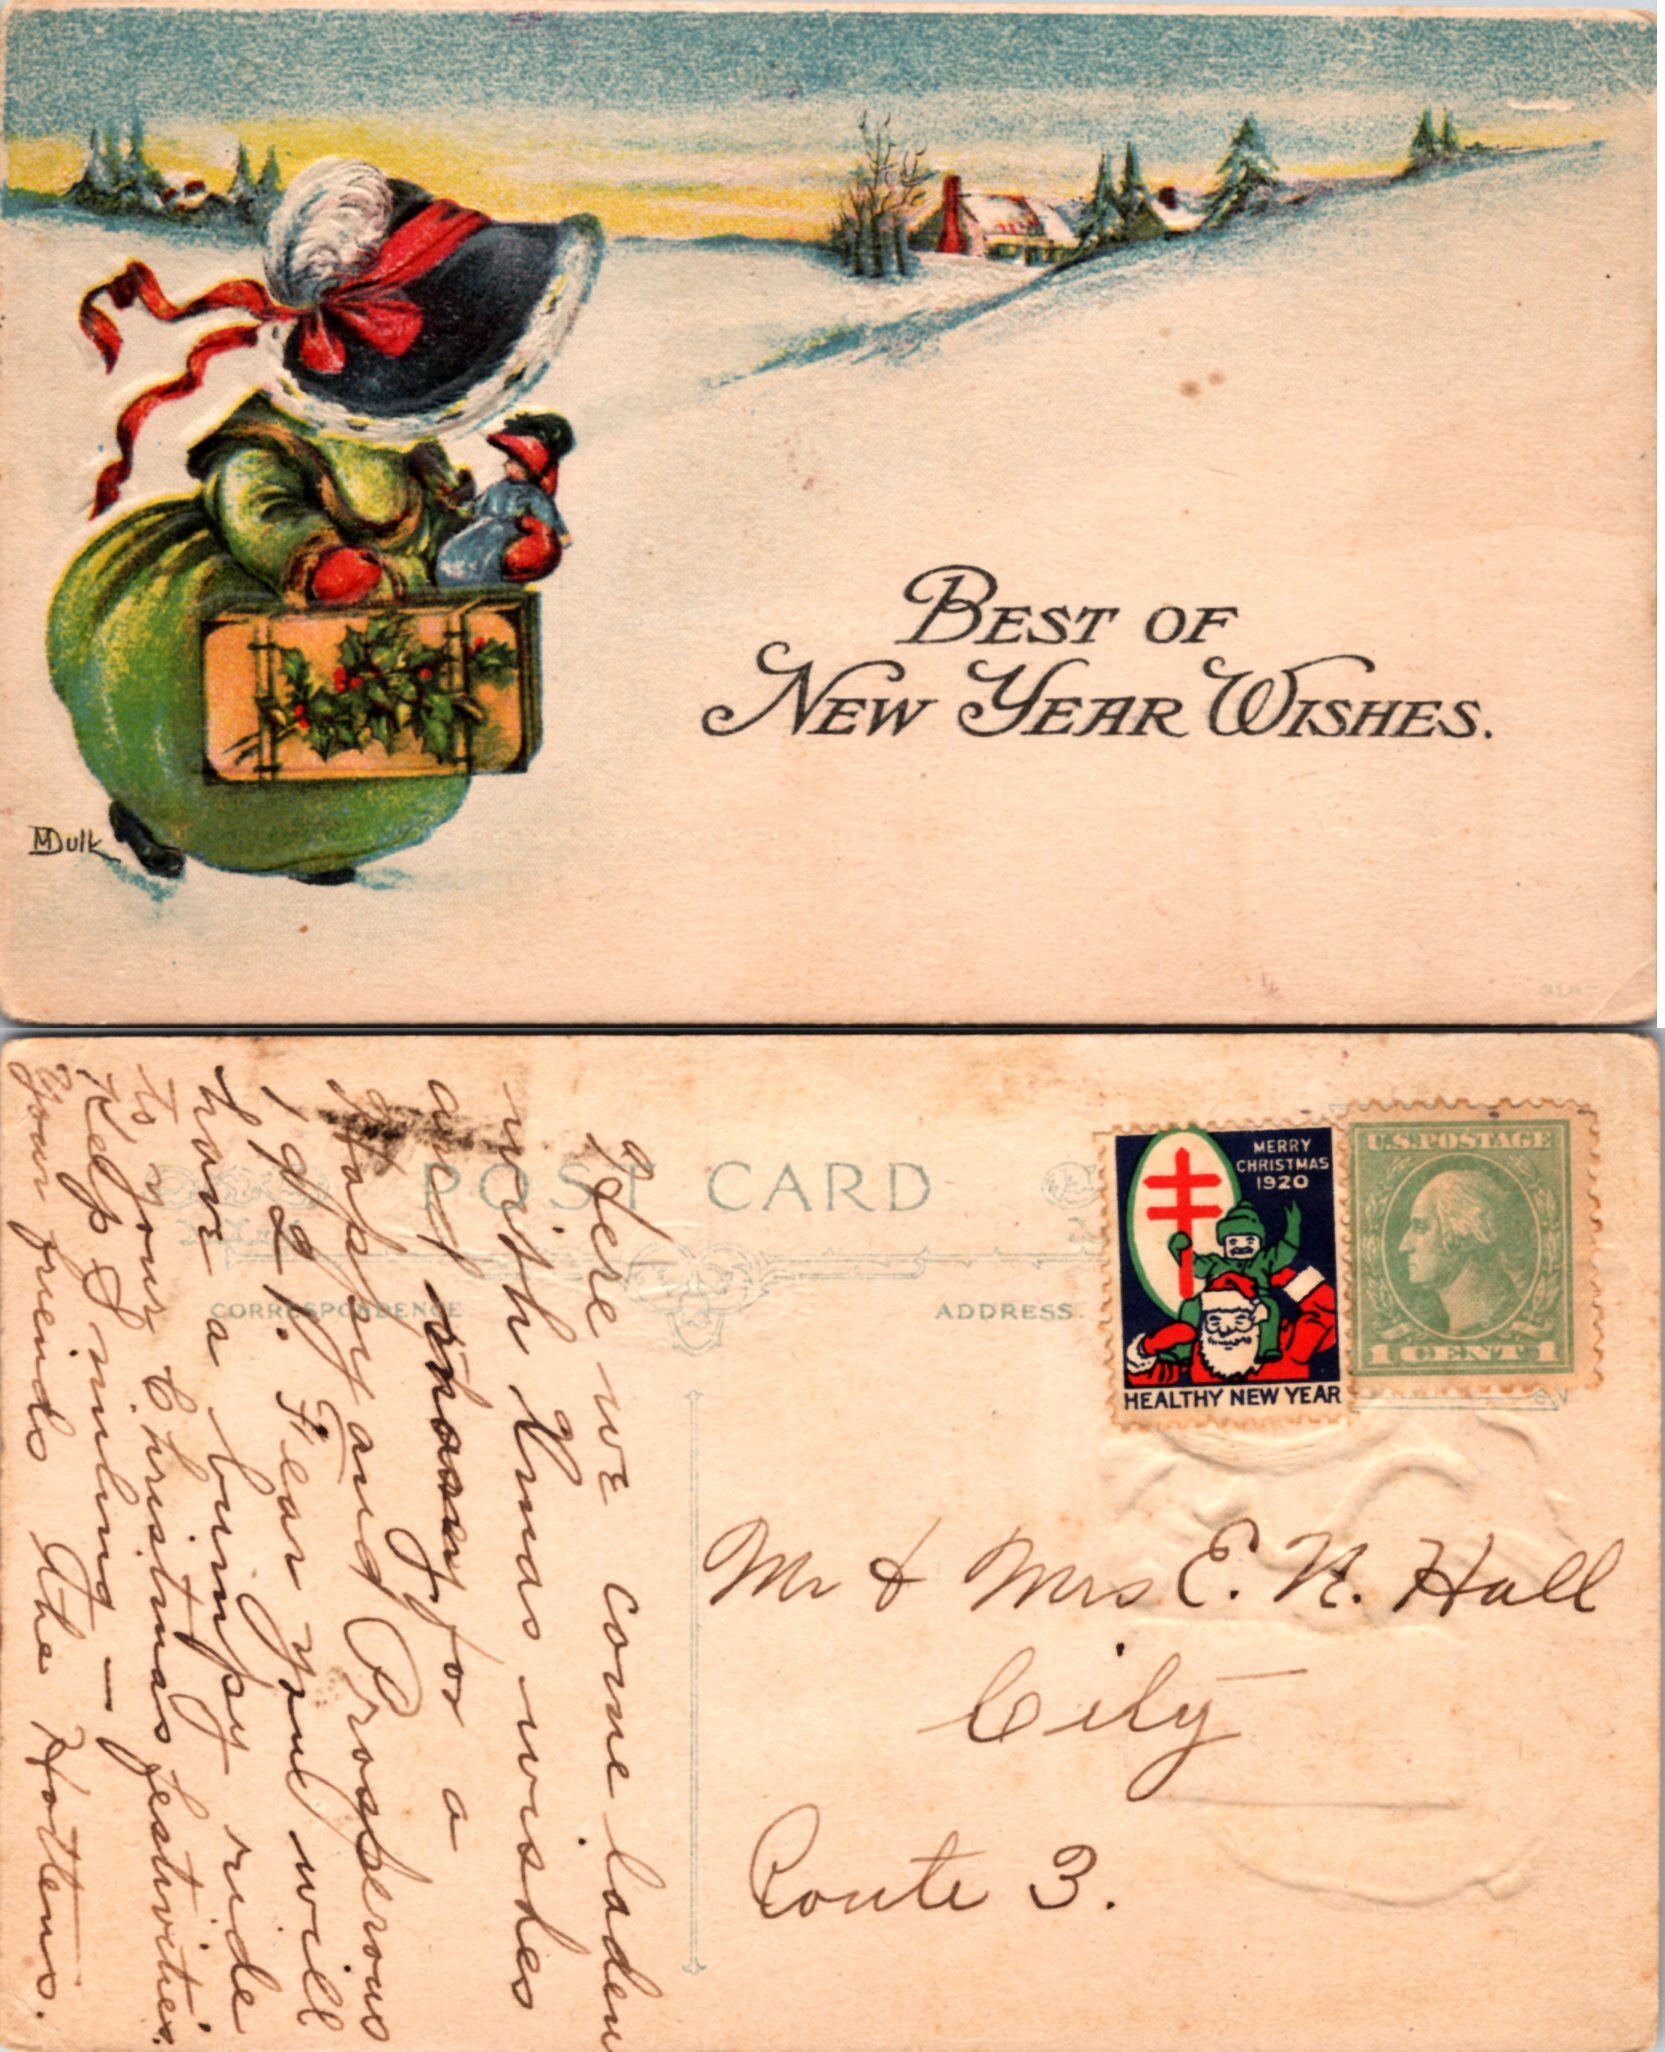 BEST OF
NEW YEAR WISHES.
MDulk
POST CARD
CORRESPONDENCE
ADDRESS.
MERRY
CHRISTMAS
1920
HEALTHY NEW YEAR
U.S. POSTAGE
1 CENT 1
Here we come laden
with Xmas wishes
and for a
Happy and Prosperous
1921. Fear you will
have a bumpy ride
to your Christmas festivities.
Keep Smiling —
Your friends the Hottens.
Mr & Mrs E. N. Hall
City
Route 3.